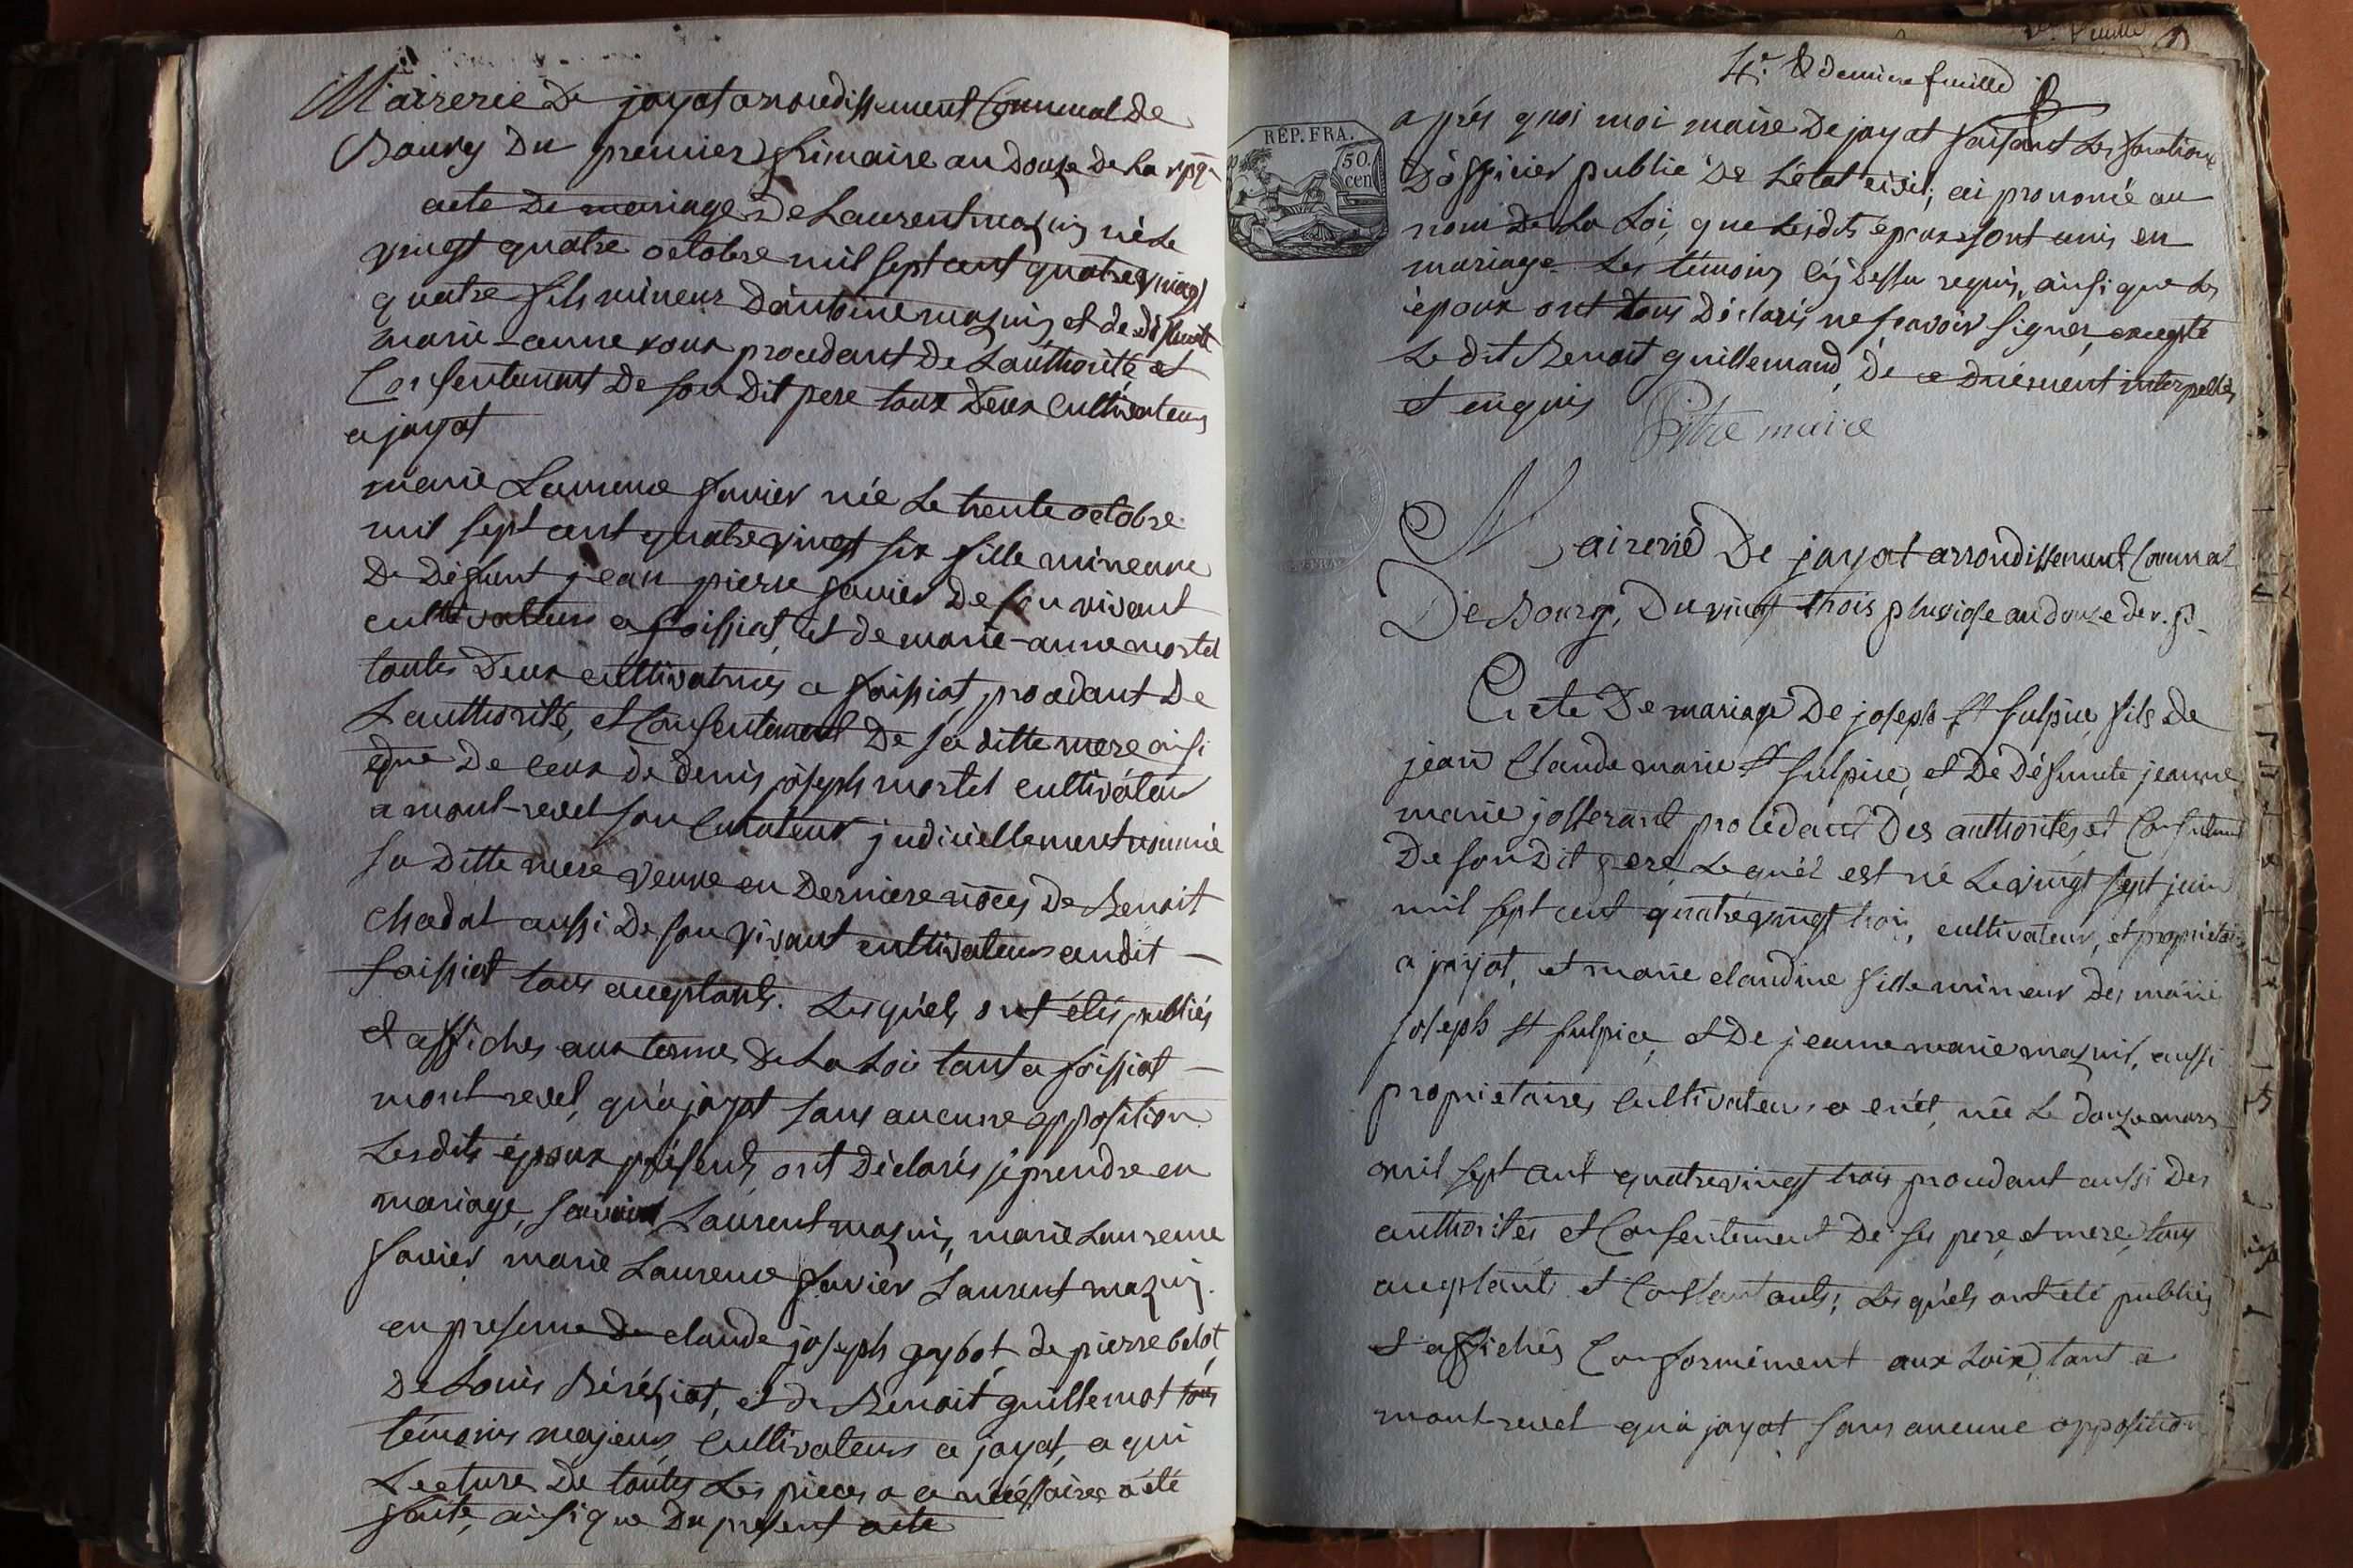 Mairerie De jayat arrondissement Communal de
Bourg Du premier frimaire an Douze de la rpq.
acte De mariage De Laurent mazuis né Le
vingt quatre octobre mil sept cent quatre vingt
quatre fils mineur D'antoine mazuis et de défunte
marie-anne roux procedant De L'authorité et
Consentement De son Dit pere toux Deux Cultivateurs
a jayat
marie Laurence favier née Le trente octobre
mil sept cent quatre vingt six fille mineure
De Défunt jean pierre favier De son vivant
cultivateur a foissiat, et de marie-anne mortel
toutes Deux cultivatrices a foissiat, procedant De
L'authorité, et Consentement De sa ditte mere ainsi
que De ceux de denis joseph mortel cultivateur
a mont-revel son Curateur judiciellement nommé
sa Ditte mere veuve en Derniere nôces De Benoit
Chadat aussi De son vivant cultivateur audit
foissiat tous acceptants. Lesquels ont étés publiés
et affichés aux terme De La Loi tant a foissiat
mont-revel, qu'a jayat sans aucune opposition
Lesdits époux présents, ont Déclarés se prendre en
mariage, savoir Laurent mazuis, marie Laurence
favier, marie Laurence favier Laurent mazuis.
en presence de claude joseph gaybot, de pierre belot,
De Louis Béréziat, et de Benoit guillemot tous
témoins majeurs, Cultivateurs a jayat, a qui
Lecture De toutes Les pieces a ce nécéssaires a été
faite, ainsi que Du present acte
4e. & derniere feuille
après quoi moi maire De jayat faisant Les fonctions
D'officier public De L'état civil, ai prononcé au
nom De La Loi, que Lesdits époux sont unis en
mariage. Les témoins Cy Dessu requis, ainsi que Les
époux ont tous Déclarés ne savoir signer, excepté
Le dit Benoit guillemaud, De ce Duement interpellés
et enquis
Pitre maire
RÉP. FRA.
50.
cen
Mairerie De jayat arrondissement Communal
De Bourg, Du vingt trois pluviose an douze de r. p.
Acte De mariage De joseph St sulpice, fils De
jean Claude marie St sulpice, et De Défunte jeanne
marie josserant procédant Des authorités, et Consentement
De son Dit pere, Lequél est né Le vingt sept juin
mil sept cent quatre vingt trois, cultivateur, et proprietaire
a jayat, et marie claudine fille mineur De marie
joseph St sulpice, et De jeanne marie mazuit, aussi
proprietaires Cultivateurs a enét, née Le douze mars
mil sept cent quatre vingt trois procedant aussi Des
authorités et Consentement De ses pere et mere, tous
acceptants et Constantants; Lesquels ont été publiés
et affichés Conformément aux Loix, tant a
mont-revel qu'a jayat sans aucune opposition